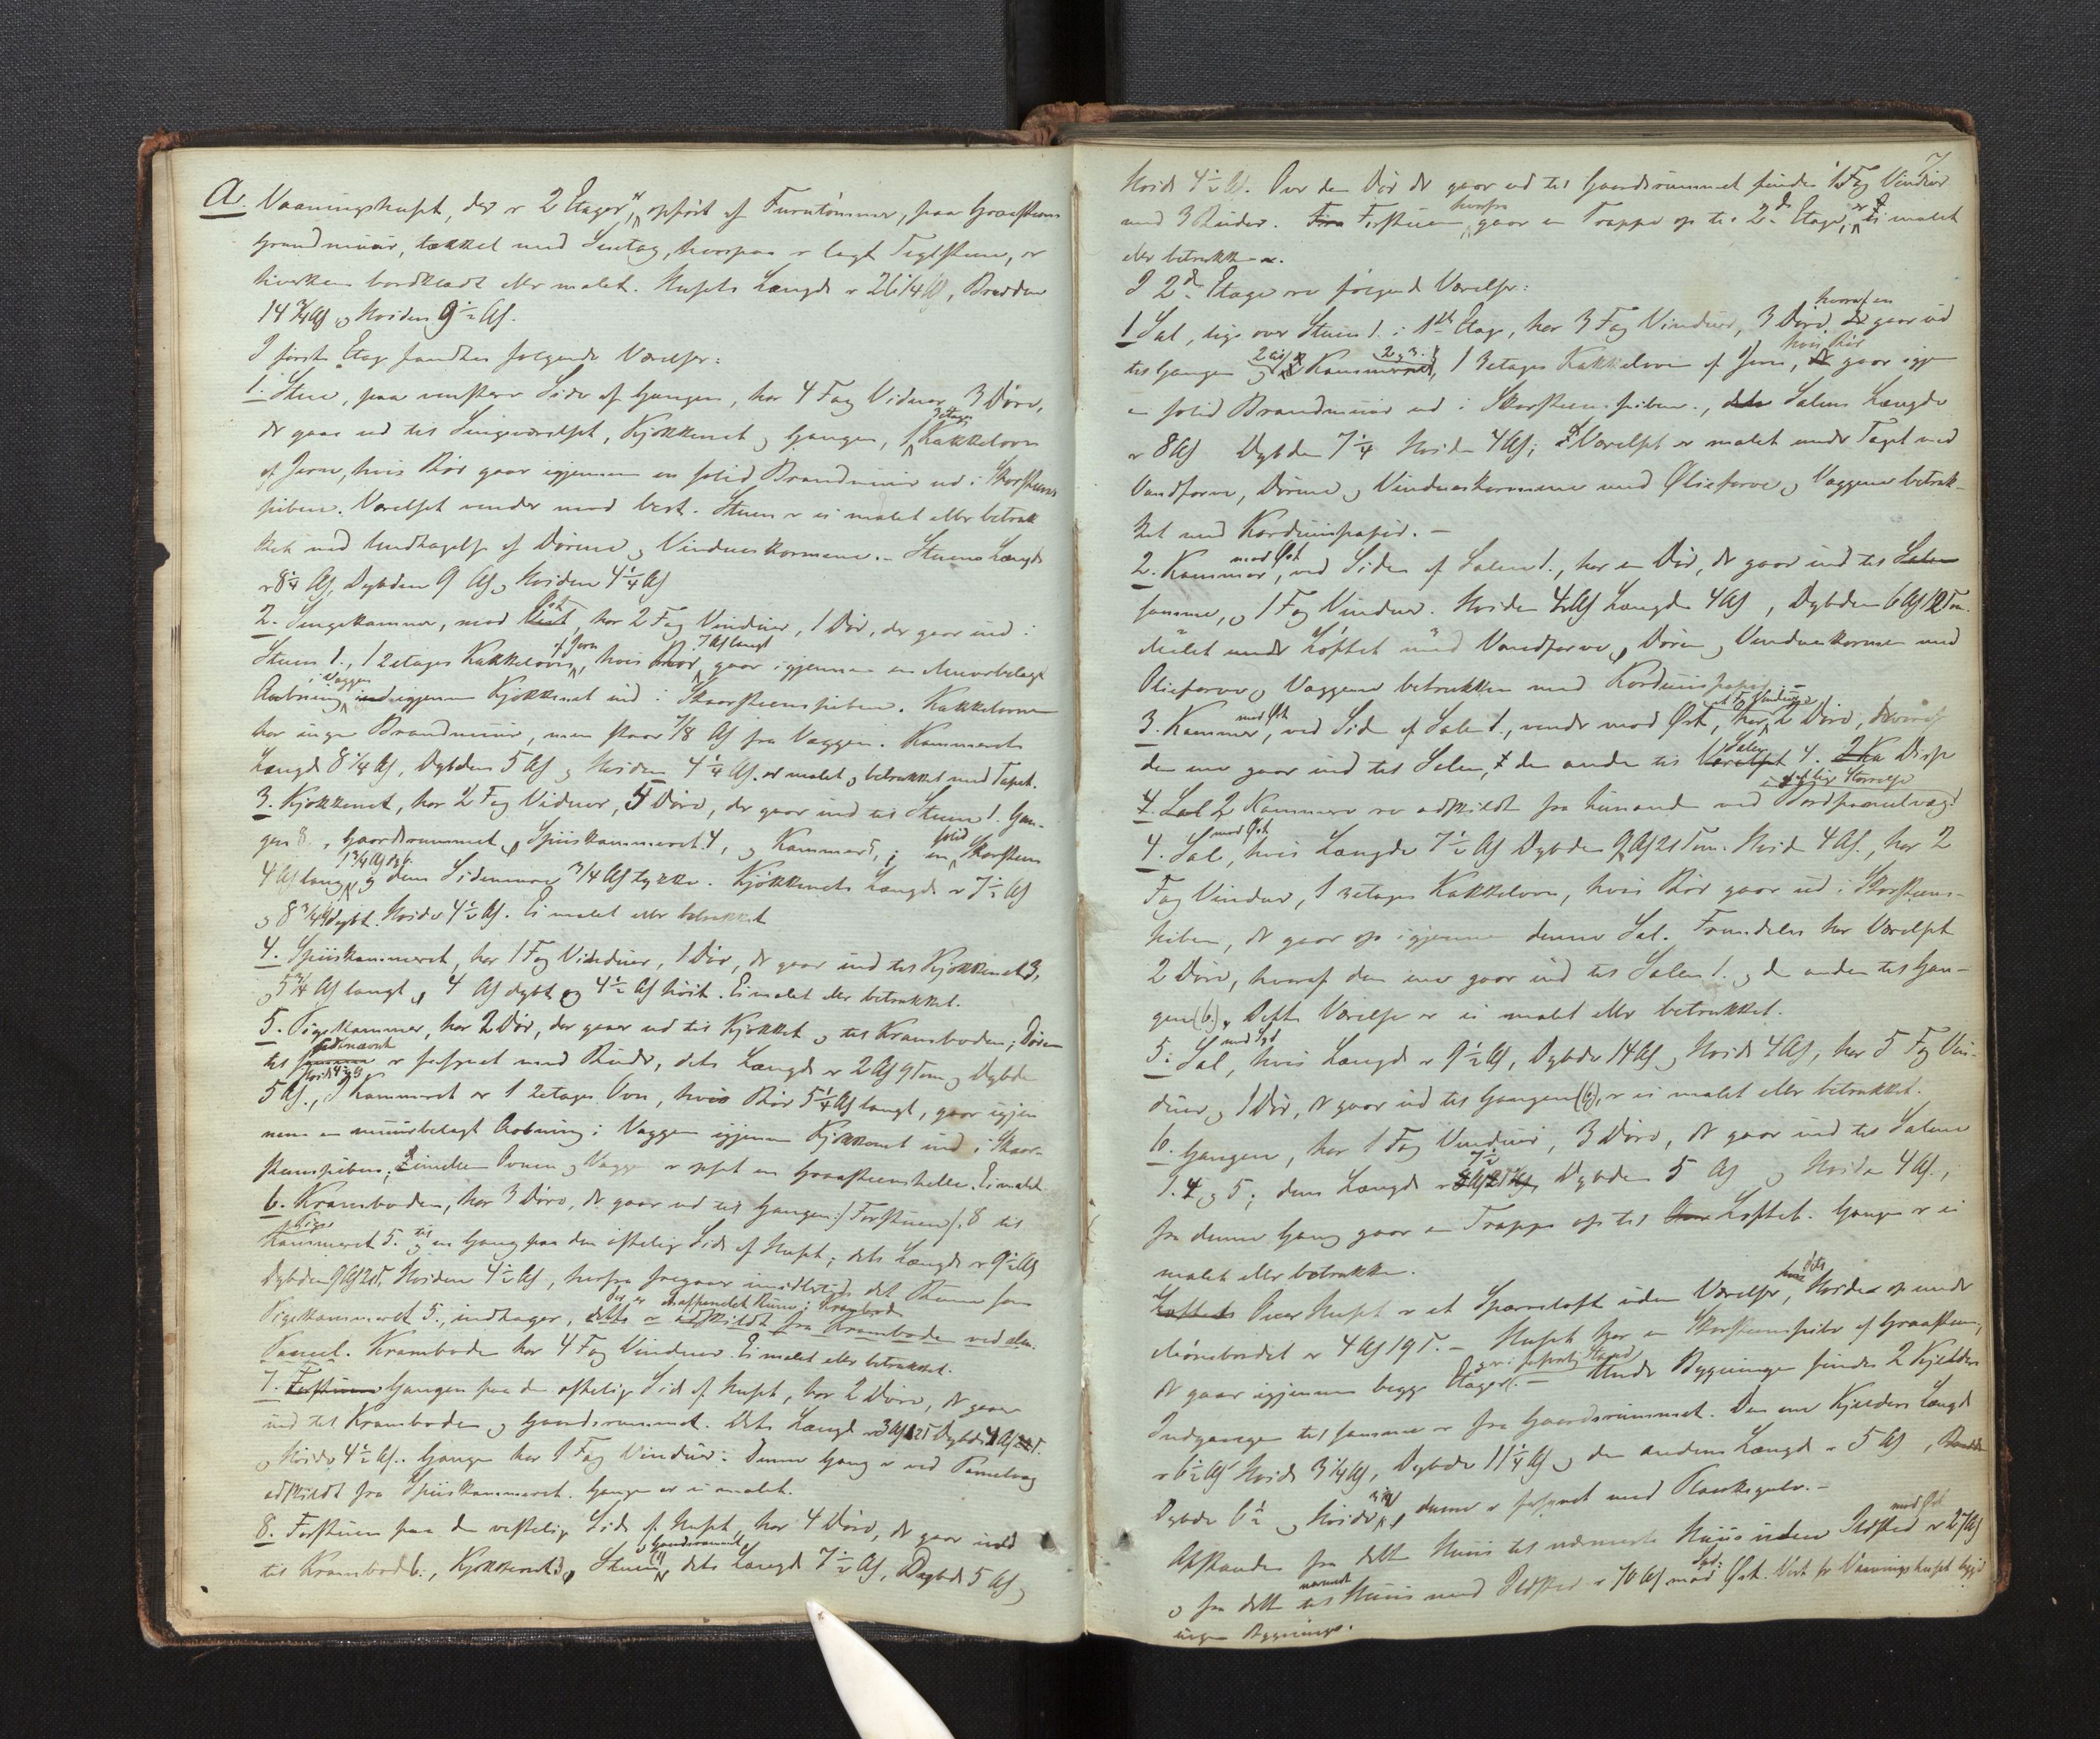 A. Vaaningshuset, der er 2 Etager, opført af Furutømmer, paa Graasteens
Grundmuur, tækket med Steentag, hvorpaa er lagt Teglsteen, er
hverken bordklædt eller malet. Husets Længde er 26 1/4 Al, Bredden
14 3/4 Al og Høiden 9 1/2 Al.
I første Etage fandtes følgende Værelser:
1. Stue, paa venstre Side af Gangen, har 4 Fag Vinduer, 3 Døre,
der gaar ud til Sengeværelset, Kjøkkenet og Gangen, 1 3etages Kakkelovn
af Jern, hvis Rør gaar igjennem en solid Brandmuur ud i Skorsteens
piben. Værelset vender mod Vest. Stuen er ei malet eller betræk
ket med Undtagelse af Dørene og Vindueskarmene. Stuens Længde
er 8 1/4 Al, Dybden 9 Al og Høiden 4 1/4 Al
2. Sengekammer, mod Øst, har 2 Fag Vinduer, 1 Dør, der gaar ind i
Stuen 1., 1 2etages Kakkelovn af Jern, hvis Rør, 7 Al langt, gaar igjennem en Muurbelagt
Aabning i Væggen igjennem Kjøkkenet ind i Skorsteenspiben. Kakkelovnen
har ingen Brandmuur, men staar 7/8 Al fra Væggen. Kammerets
Længde 8 1/4 Al, Dybden 5 Al og Høiden 4 1/4 Al. er malet og betrukket med Tapet.
3. Kjøkkenet, har 2 Fag Vinduer, 5 Døre, der gaar ind til Stuen 1. Gan-
gen 8, Gaardsrummet, Spiiskammeret 4, og Kammer 5, en solid Skorsteen
4 Al lang, 1 3/4 Al dyb og dens Sidemure 3/4 Al tykke. Kjøkkenets Længde er 7 1/2 Al
og 8 3/4 Al dybt. Høide 4 1/2 Al. Ei malet eller betrukket
4. Spiiskammeret, har 1 Fag Vinduer, 1 Dør, der gaar ind til Kjøkkenet 3,
og 5 3/4 Al langt, 4 Al dybt og 4 1/2 Al høit. Ei malet eller betrukket.
5. Pigekammer, har 2 Dør, der gaar ud til Kjøkket og til Kramboden; Døren
til sidstnævnte er forsynet med Ruder, dets Længde er 2 Al 9 Tom og Dybden
5 Al., Høide 4 1/2 Al I Kammeret er 1 2etages Ovn, hvis Rør 5 1/4 Al langt, gaar igjen
nem en muurbelagt Aabning i Væggen igjennem Kjøkkenet ind i Skor-
steenspiben; imellem Ovnen og Væggen er opsat en Graasteenshelle. Ei malet
6. Kramboden, har 3 Døre, der gaar ud til Gangen /: Forstuen :/ 8 til
Pige Kammeret 5. og til en Gang paa den østelige Side af Huset; dets Længde er 9 1/2 Al
Dybden 9 Al 20 T. Høiden 4 1/2 Al, herfra fragaar imidlertid det Rum som
Pigekammeret 5., indtager, der er afpanelet Rum i Krambod
dette er adskildt fra Kramboden ved en
Paneel. Kramboden har 4 Fag Vinduer. Ei malet eller betrukket.
7. Forstuen Gangen paa den østelige Side af Huset, har 2 Døre, der gaar
ind til Kramboden og Gaardsrummet. Dets Længde er 3 Al 12 T Dybde 4 Al
og Høide 4 1/2 Al. Gangen har 1 Fag Vinduer: Denne Gang er ved Paneelvæg
adskildt fra Spiiskammeret. Gangen er ei malet.
8. Forstuen paa den vestelige Side af Huset, har 4 Døre, der gaar ind
til Krambod 6., Kjøkkenet 3, Stuen 1, og Gaardsrummet, dets Længde 7 1/2 Al, Dybde 5 Al og
7
Høide 4 1/2 Al. Over den Dør der gaar ud til Gaardsrummet findes 1 Fag Vinduer
med 3 Ruder. Fra Forstuen, hvorfra gaar en Trappe op til 2den Etage, er ei malet
eller betrukken.
I 2den Etage ere følgende Værelser:
1 Sal, lige over Stuen 1. i 1ste Etage, har 3 Fag Vinduer, 3 Døre, hvoraf en gaar ud
til Gangen og 2 til Kammerne 2 og 3., 1 3etages Kakkelovn af Jern, hvis Rør gaar igjen
en solid Brandmuur ud i Skorsteenspiben., Salens Længde
er 8 Al Dybden 7 1/4 Høiden 4 Al; Værelset er malet under Taget med
Vandfarve, Dørene og Vindueskarmene med Oliefarve og Væggene betruk-
ket med Kardunspapir. -
2. Kammer, mod Øst, ved Siden af Salen 1., har en Dør, der gaar ind til Salen
samme, og 1 Fag Vinduer. Høiden 4 Al Længde 4 Al, Dybden 6 Al 12 Tom.
Malet under Loftet med Vandfarve, Døren og Vindueskarmen med
Oliefarve og Væggene betrukken med Kardunspapir. -
3. Kammer, mod Øst, ved Siden af Salen 1., vender mod Øst, har et Fag Vinduer, 2 Døre, hvoraf
den ene gaar ind til Salen, den anden til Salen 4. Disse
2 Kammere ere adskildt fra hinanden ved Bordpaneelvæg
4. Sal, mod Øst, hvis Længde 7 1/2 Al Dybden 9 Al 21 Tom. Høide 4 Al., har 2
Fag Vinduer, 1 2etages Kakkelovn, hvis Rør gaar ud i Skorsteens-
piben, der gaar op igjennem denne Sal. Fremdeles har Værelset
2 Døre, hvoraf den ene gaar ind til Salen 1. og den anden til Gan-
gen (6.) Dette Værelse er ei malet eller betrukket.
5. Sal, mod Syd, hvis Længde er 9 1/2 Al, Dybde 14 Al og Høide 4 Al, har 5 Fag Vin-
duer og 1 Dør, der gaar ud til Gangen (6), er ei malet eller betrukket.
6. Gangen, har 1 Fag Vinduer, 3 Døre, der gaar ind til Salene
1. 4 og 5; dens Længde er 7 1/2 Al, Dybden 5 Al og Høiden 4 Al.,
fra denne Gang gaar en Trappe op til Loftet. Gangen er ei
malet eller betrukken.
Loftets Over Huset er et Sparreloft uden Værelser, dets Høide op under
Mønebordet er 4 Al 19 T. - Huset har en Skorsteenspibe af Graasteen,
der gaar igjennem begge Etager. - Under Bygningen findes 2 Kjeldere
Indgangen til samme er fra Gaardsrummet. Den ene Kjelders Længde
er 6 1/2 Al Høide 3 1/4 Al, Dybde 11 1/4 Al og den andens Længde er 5 Al,
Dybde 6 1/2 og Høide, denne er forsynet med Plankegulv. -
Afstanden fra dette Huus til nærmeste Huus uden Ildsted er 27 Al mod Øst
og fra dette til nærmeste Huus med Ildsted er 70 Al mod Syd: Øst. Vest for Vaaningshuset ligger
ingen Bygninger.